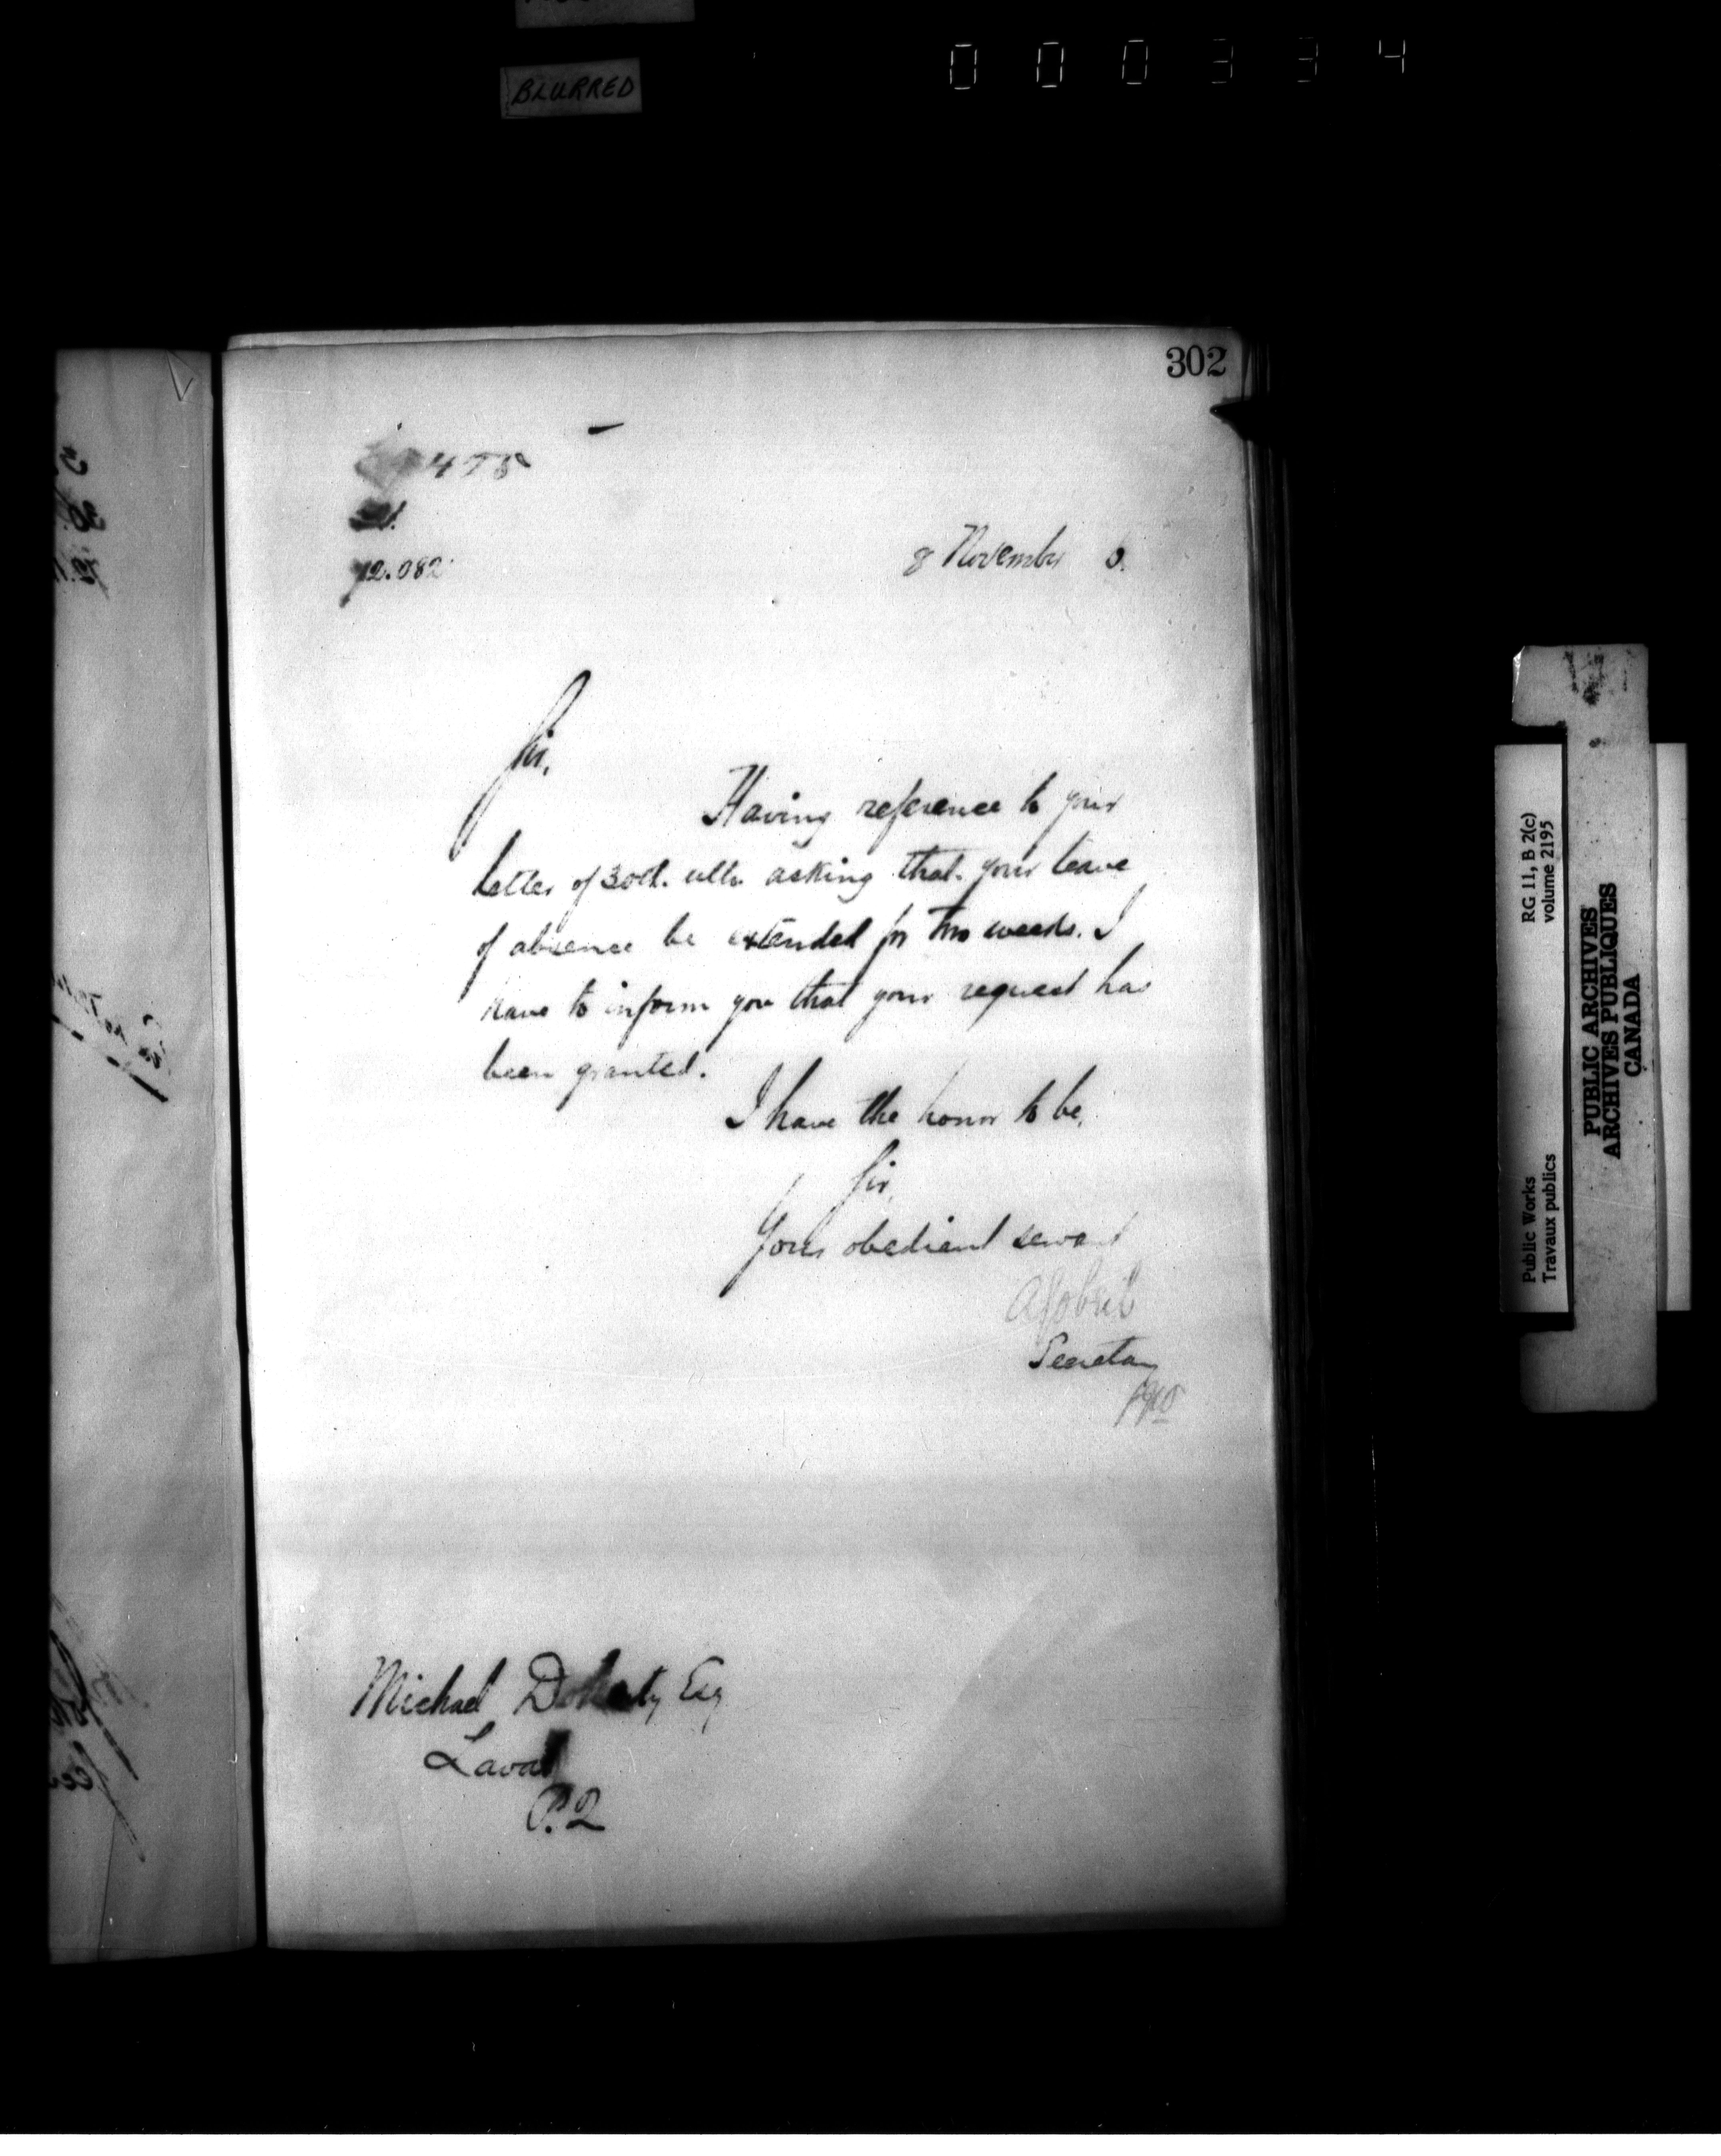 BLURRED
000334
302
72.082
8 November 6.
Sir,
Having reference to your
letter of 30th. ulto. asking that your leave
of absence be extended for two weeks. I
have to inform you that your request has
been granted.
I have the honor to be,
Sir,
Your obedient servant
A Gobeil
Secretary
Michael Doherty Esq
Laval
P.Q
RG 11, B 2(c)
volume 2195
Public Works
Travaux publics
PUBLIC ARCHIVES
ARCHIVES PUBLIQUES
CANADA